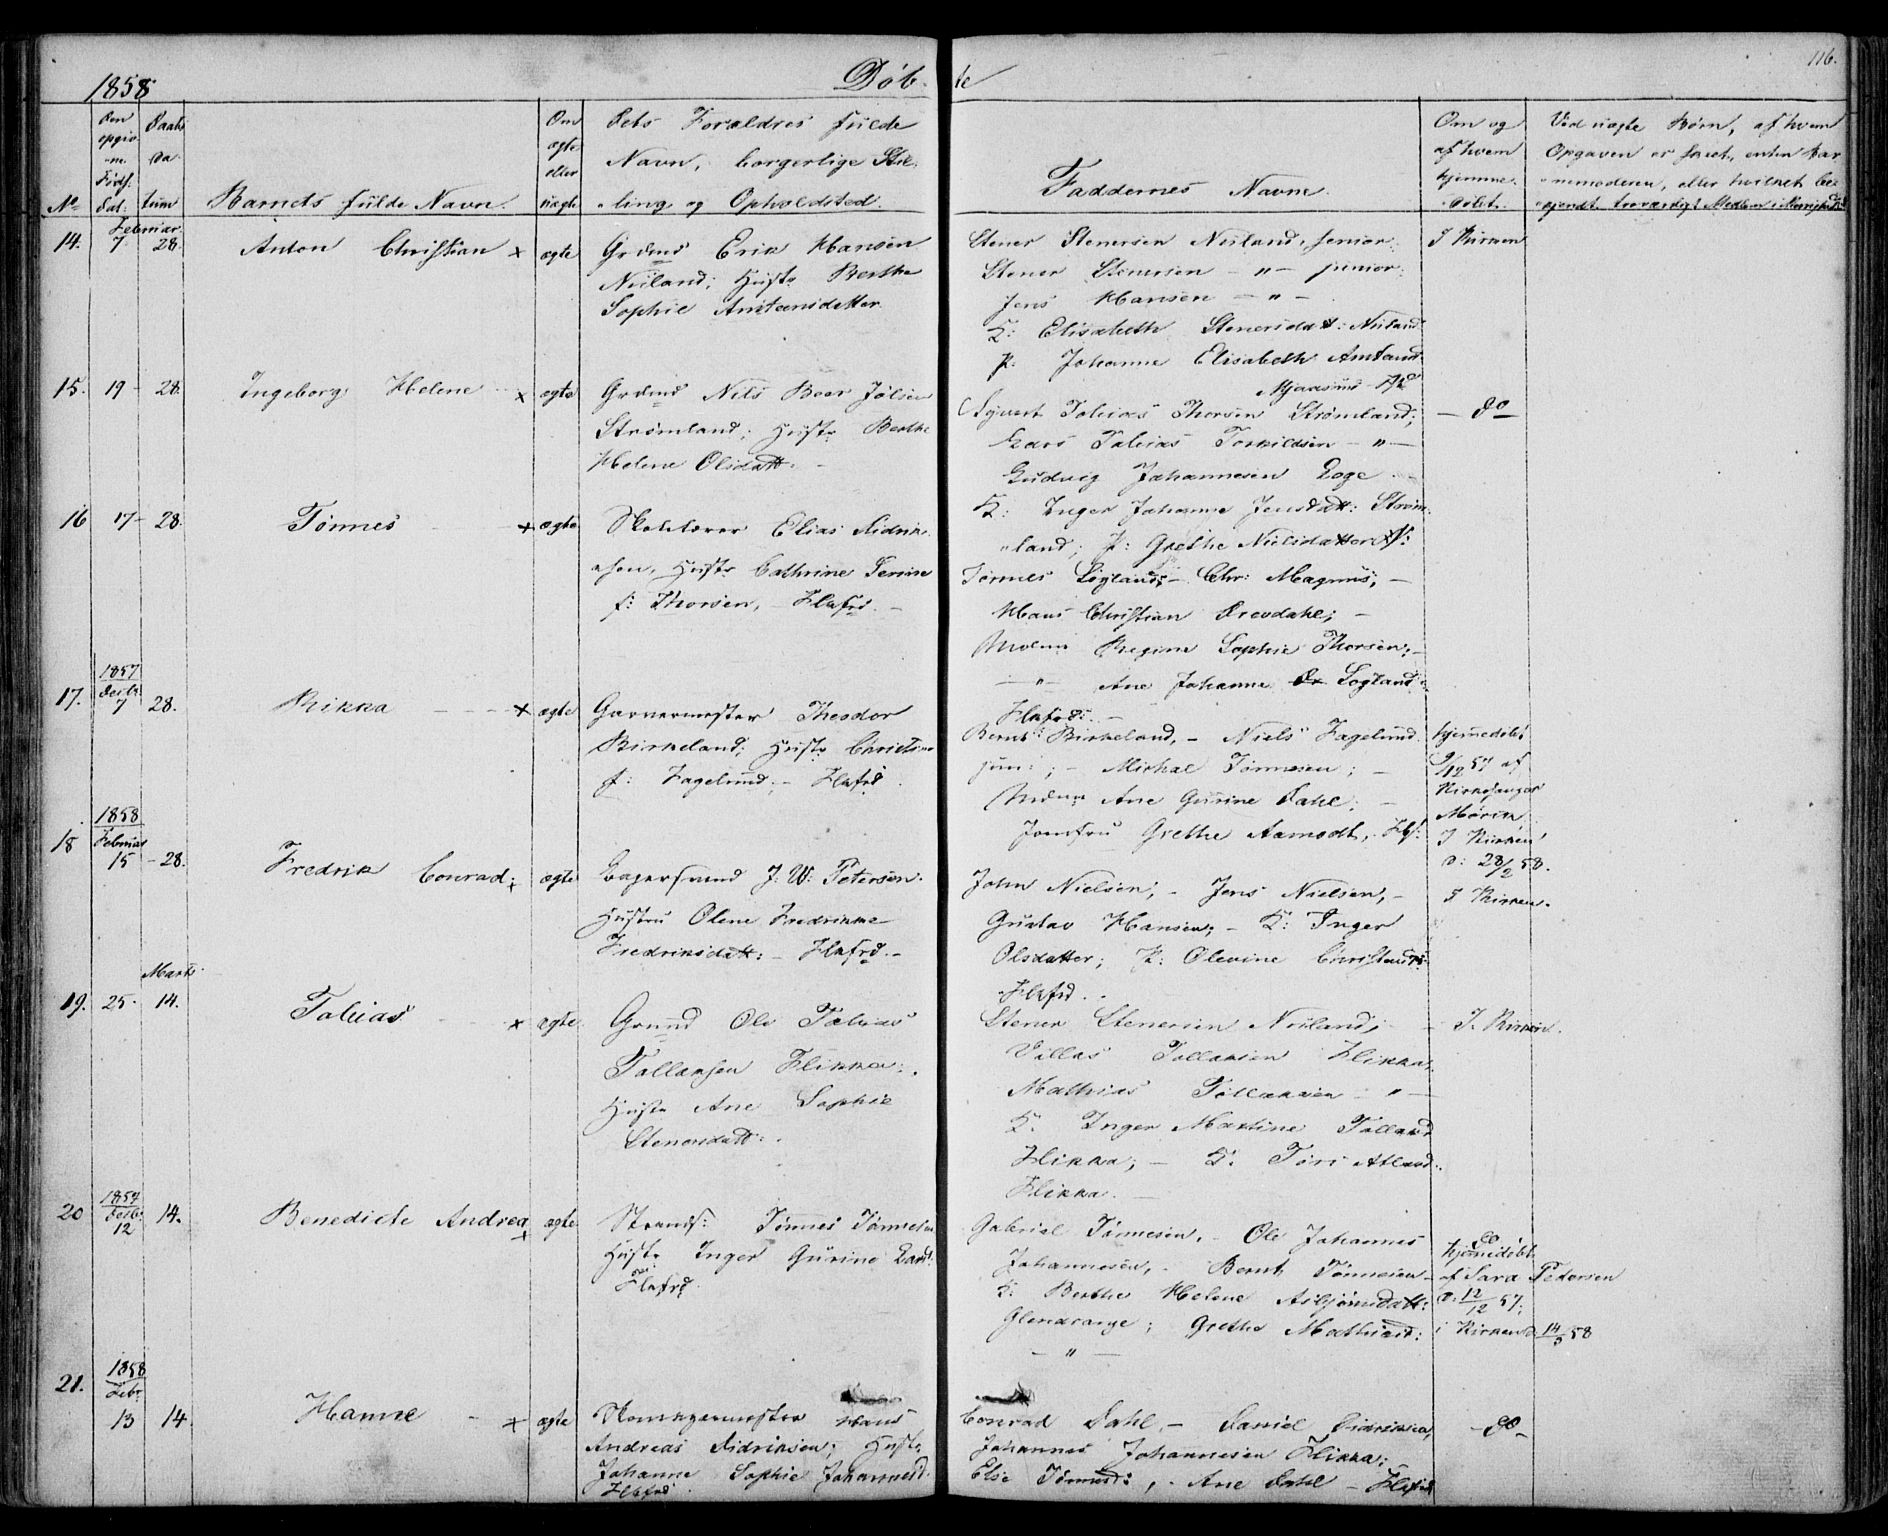 116.
1858
Døbte
No
Den opgivne Føds: Dat:
Daabs Datum
Barnets fulde Navn.
Om ægte eller uægte
Dets Forældres fulde
Navn, borgerlige Stil-
ling og Opholdsted.
Faddernes Navne
Om og af hvem hjemme-døbt.
Ved uægte Børn, af hvem
Opgaven er skeet, enten Bar-
nemoderen, eller hvilket bee-
Februar
14. 7. 28. Anton Christian x ægte
Grdmd Erik Hansen
Nuland; Hustr Berthe
Sophie Amtensdatter
Stener Stenersen Nuland, senior
Stener Stenersen -"- junior.
Jens Hansen -"-
K: Elisabeth Stenersdatt: Nuland
P. Johanne Elisabeth
I Kirken
15. 19 - 28. Ingeborg Helene x ægte
Grdmd Nils Beer
Strømland; Hustr Berthe
Helene Olsdatt.
Syvert Tobias Thorsen Strømland;
Lars Tobias Torkildsen -"-
Ludvig Johannesen Loge
K: Inger Johanne Jensdatt: Strøm-
land; P: Grethe Nielsdatter
- do -
16 17 - 28. Tønnes x ægte
Skolelærer Elias Didrik-
sen, Hustr Cathrine Serine
f: Thorsen, - Flkfrd. -
Tønnes Logland; - Chr: Magnus; -
Hans Christian Drevdahl; -
Madm Regine Sophie Thorsen; -
-"- Ane Johanne Logland
Flkfrd: -
1857
Decbr
17. 7 28. Rikka x ægte
Garvermester Theodor
Birkeland; Hustr
f: Fagelund; - Flkfrd.
Bernt Birkeland, - Niels Fagelund
jun:; - Michal Tønnesen; -
Madm Ane Gurine Dahl; -
Jomfru Grethe Aamodt, Flkf.
hjemmedøbt
9/12 57 af
Kirkesanger
I Kirken
d: 28/2 58.
1858
Februar
18 15 - 28. Fredrik Conrad; x ægte
J: W: Petersen.
Hustru Olene Fredrikke
Fredriksdatt: - Flkfrd. -
John Nielsen; - Jens Nielsen, -
Gustav Hansen; - K: Inger
Olsdatter; P: Olevine
Flkfrd.
I Kirken.
Marts.
19. 25. 14. Tobias x ægte
Grmd Ole Tobias
Tollaksen Flikka;
Hustr Ane Sophie
Stenersdatt:
Stener Stenersen Nuland;
Villas Tollaksen Flikka;
Mathias Tollaksen -"-
K. Inger Martine
Flikka; - P.
Flikka. -
I Kirken.
1857
Decbr
20 12 14. Benedicte Andrea x ægte
Strands: Tønnes Tønnesen
Hustr Inger Gurine
Flkfrd.
Gabriel Tønnesen, - Ole Johannes
Johannesen, - Bernt Tønnesen -
K: Berthe Helene Asbjørnsdatt:
Glendrange; Grethe Mathiasd:
-"-
do
hjemmedøbt
af Sara Pedersen
d: 12/12 57;
i Kirken d. 14/3 58
1858
Febr
21. 13 14 Hanne x ægte
Skomagermester Hans
Andreas Didriksen; Hustr
Johanne Sophie Johannesd.
Flkfrd.
Conrad Dahl, - Daniel Didriksen,
Johannes Johannesen Flikka;
Else Tønnesd:, - Ane Dahl - Flkfrd
- do -